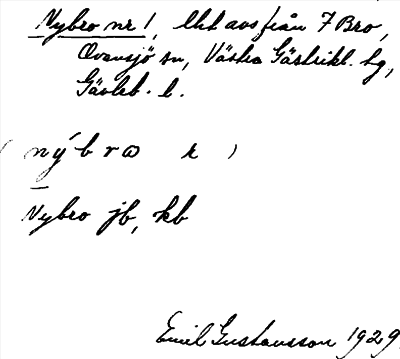 Nybro nr 1, lht avs från 7 Bro,
Ovansjö sn, Västra Gästrikl. hg,
Gävleb. l.
( nýbrω k )
Nybro jb, kb
Emil Gustavsson 1929.